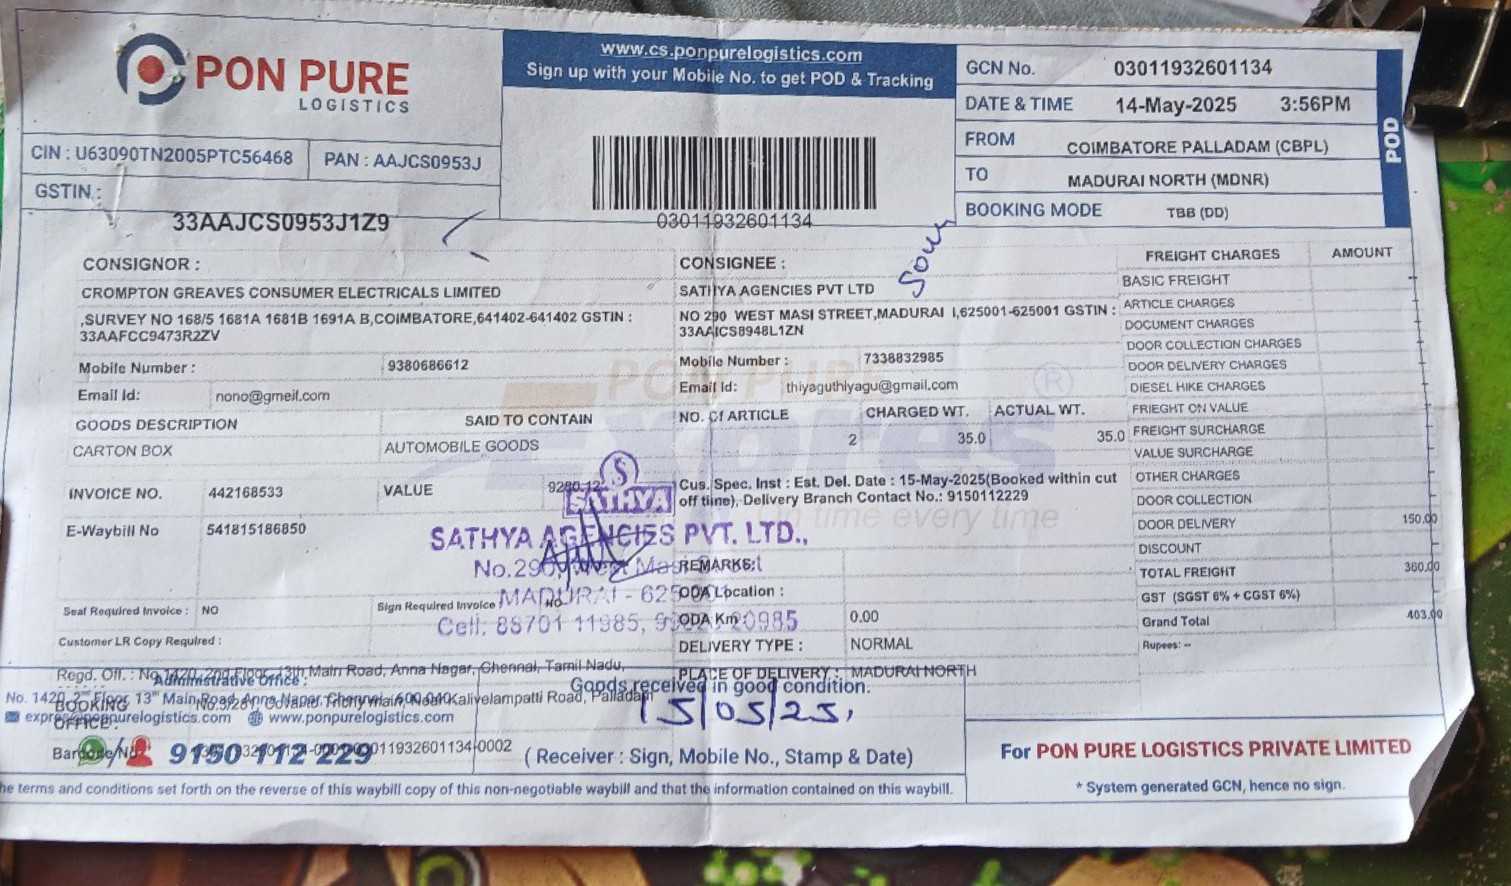 PON PURE
LOGISTICS
CIN : U63090TN2005PTC56468
PAN : AAJCS0953J
GSTIN :
33AAJCS0953J1Z9
www.cs.ponpurelogistics.com
Sign up with your Mobile No. to get POD & Tracking
03011932601134
GCN No. 03011932601134
DATE & TIME 14-May-2025 3:56PM
FROM COIMBATORE PALLADAM (CBPL)
TO MADURAI NORTH (MDNR)
BOOKING MODE TBB (DD)
POD
CONSIGNOR :
CROMPTON GREAVES CONSUMER ELECTRICALS LIMITED
,SURVEY NO 168/5 1681A 1681B 1691A B,COIMBATORE,641402-641402 GSTIN :
33AAFCC9473R2ZV
Mobile Number : 9380686612
Email Id: nono@gmeil.com
GOODS DESCRIPTION SAID TO CONTAIN
CARTON BOX AUTOMOBILE GOODS
INVOICE NO. 442168533 VALUE
E-Waybill No 541815186850
Seal Required Invoice : NO Sign Required Invoice NO
Customer LR Copy Required :
CONSIGNEE :
SATHYA AGENCIES PVT LTD
NO 290 WEST MASI STREET,MADURAI I,625001-625001 GSTIN :
33AAICS8948L1ZN
Mobile Number : 7338832985
Email Id: thiyaguthiyagu@gmail.com
NO. Of ARTICLE CHARGED WT. ACTUAL WT.
2 35.0 35.0
Cus. Spec. Inst : Est. Del. Date : 15-May-2025(Booked within cut
off time), Delivery Branch Contact No.: 9150112229
On time every time
REMARKS:
ODA Location :
ODA Km 0.00
DELIVERY TYPE : NORMAL
PLACE OF DELIVERY : MADURAI NORTH
FREIGHT CHARGES AMOUNT
BASIC FREIGHT
ARTICLE CHARGES
DOCUMENT CHARGES
DOOR COLLECTION CHARGES
DOOR DELIVERY CHARGES
DIESEL HIKE CHARGES
FRIEGHT ON VALUE
FREIGHT SURCHARGE
VALUE SURCHARGE
OTHER CHARGES
DOOR COLLECTION
DOOR DELIVERY 150.00
DISCOUNT
TOTAL FREIGHT 360.00
GST (SGST 6% + CGST 6%)
Grand Total 403.00
Rupees: --
SATHYA
SATHYA AGENCIES PVT. LTD.,
No.290, West
MADURAI - 625 001
Cell: 88701 11985,
Regd. Off. : No.1420, 2nd Floor, 13th Main Road, Anna Nagar, Chennai, Tamil Nadu,
Administrative Office :
No. 1420, 2nd Floor, 13th Main Road, Anna Nagar, Chennai, 600 040
Kalivelampatti Road, Palladam
BOOKING
OFFICE :
www.ponpurelogistics.com
9150 112 229
Goods received in good condition.
15/05/25,
( Receiver : Sign, Mobile No., Stamp & Date)
For PON PURE LOGISTICS PRIVATE LIMITED
* System generated GCN, hence no sign.
he terms and conditions set forth on the reverse of this waybill copy of this non-negotiable waybill and that the information contained on this waybill.